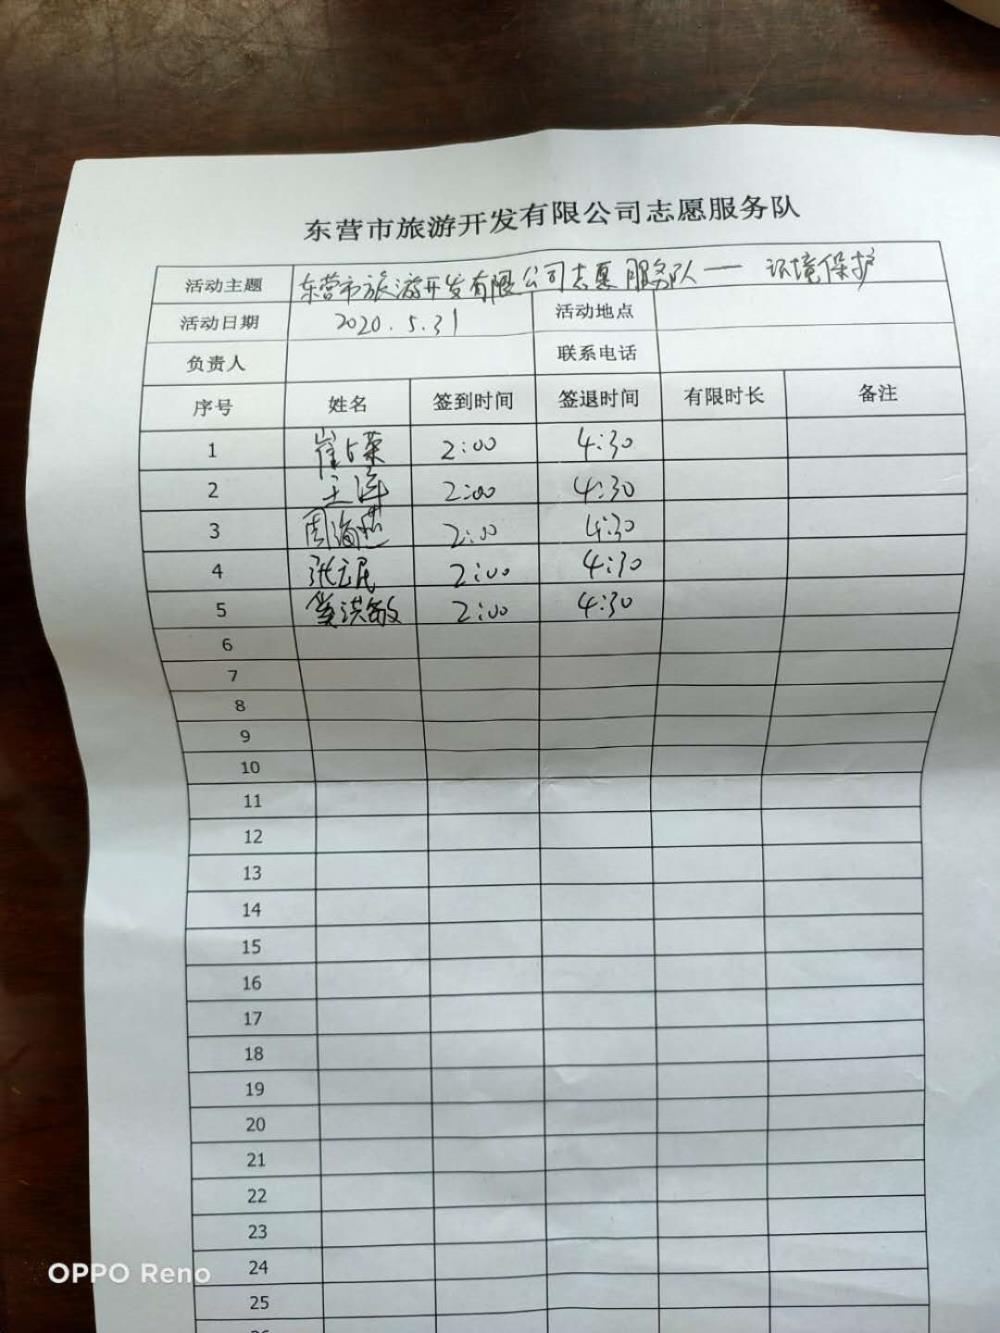 东营市旅游开发有限公司志愿服务队
活动主题 东营市旅游开发有限公司志愿服务队— 环境保护
活动日期 2020.5.31 活动地点
负责人 联系电话
序号 姓名 签到时间 签退时间 有限时长 备注
1 崔占荣 2:00 4:30
2 王 2:00 4:30
3 周海燕 2:00 4:30
4 张立民 2:00 4:30
5 洪敏 2:00 4:30
6
7
8
9
10
11
12
13
14
15
16
17
18
19
20
21
22
23
24
25
26
OPPO Reno